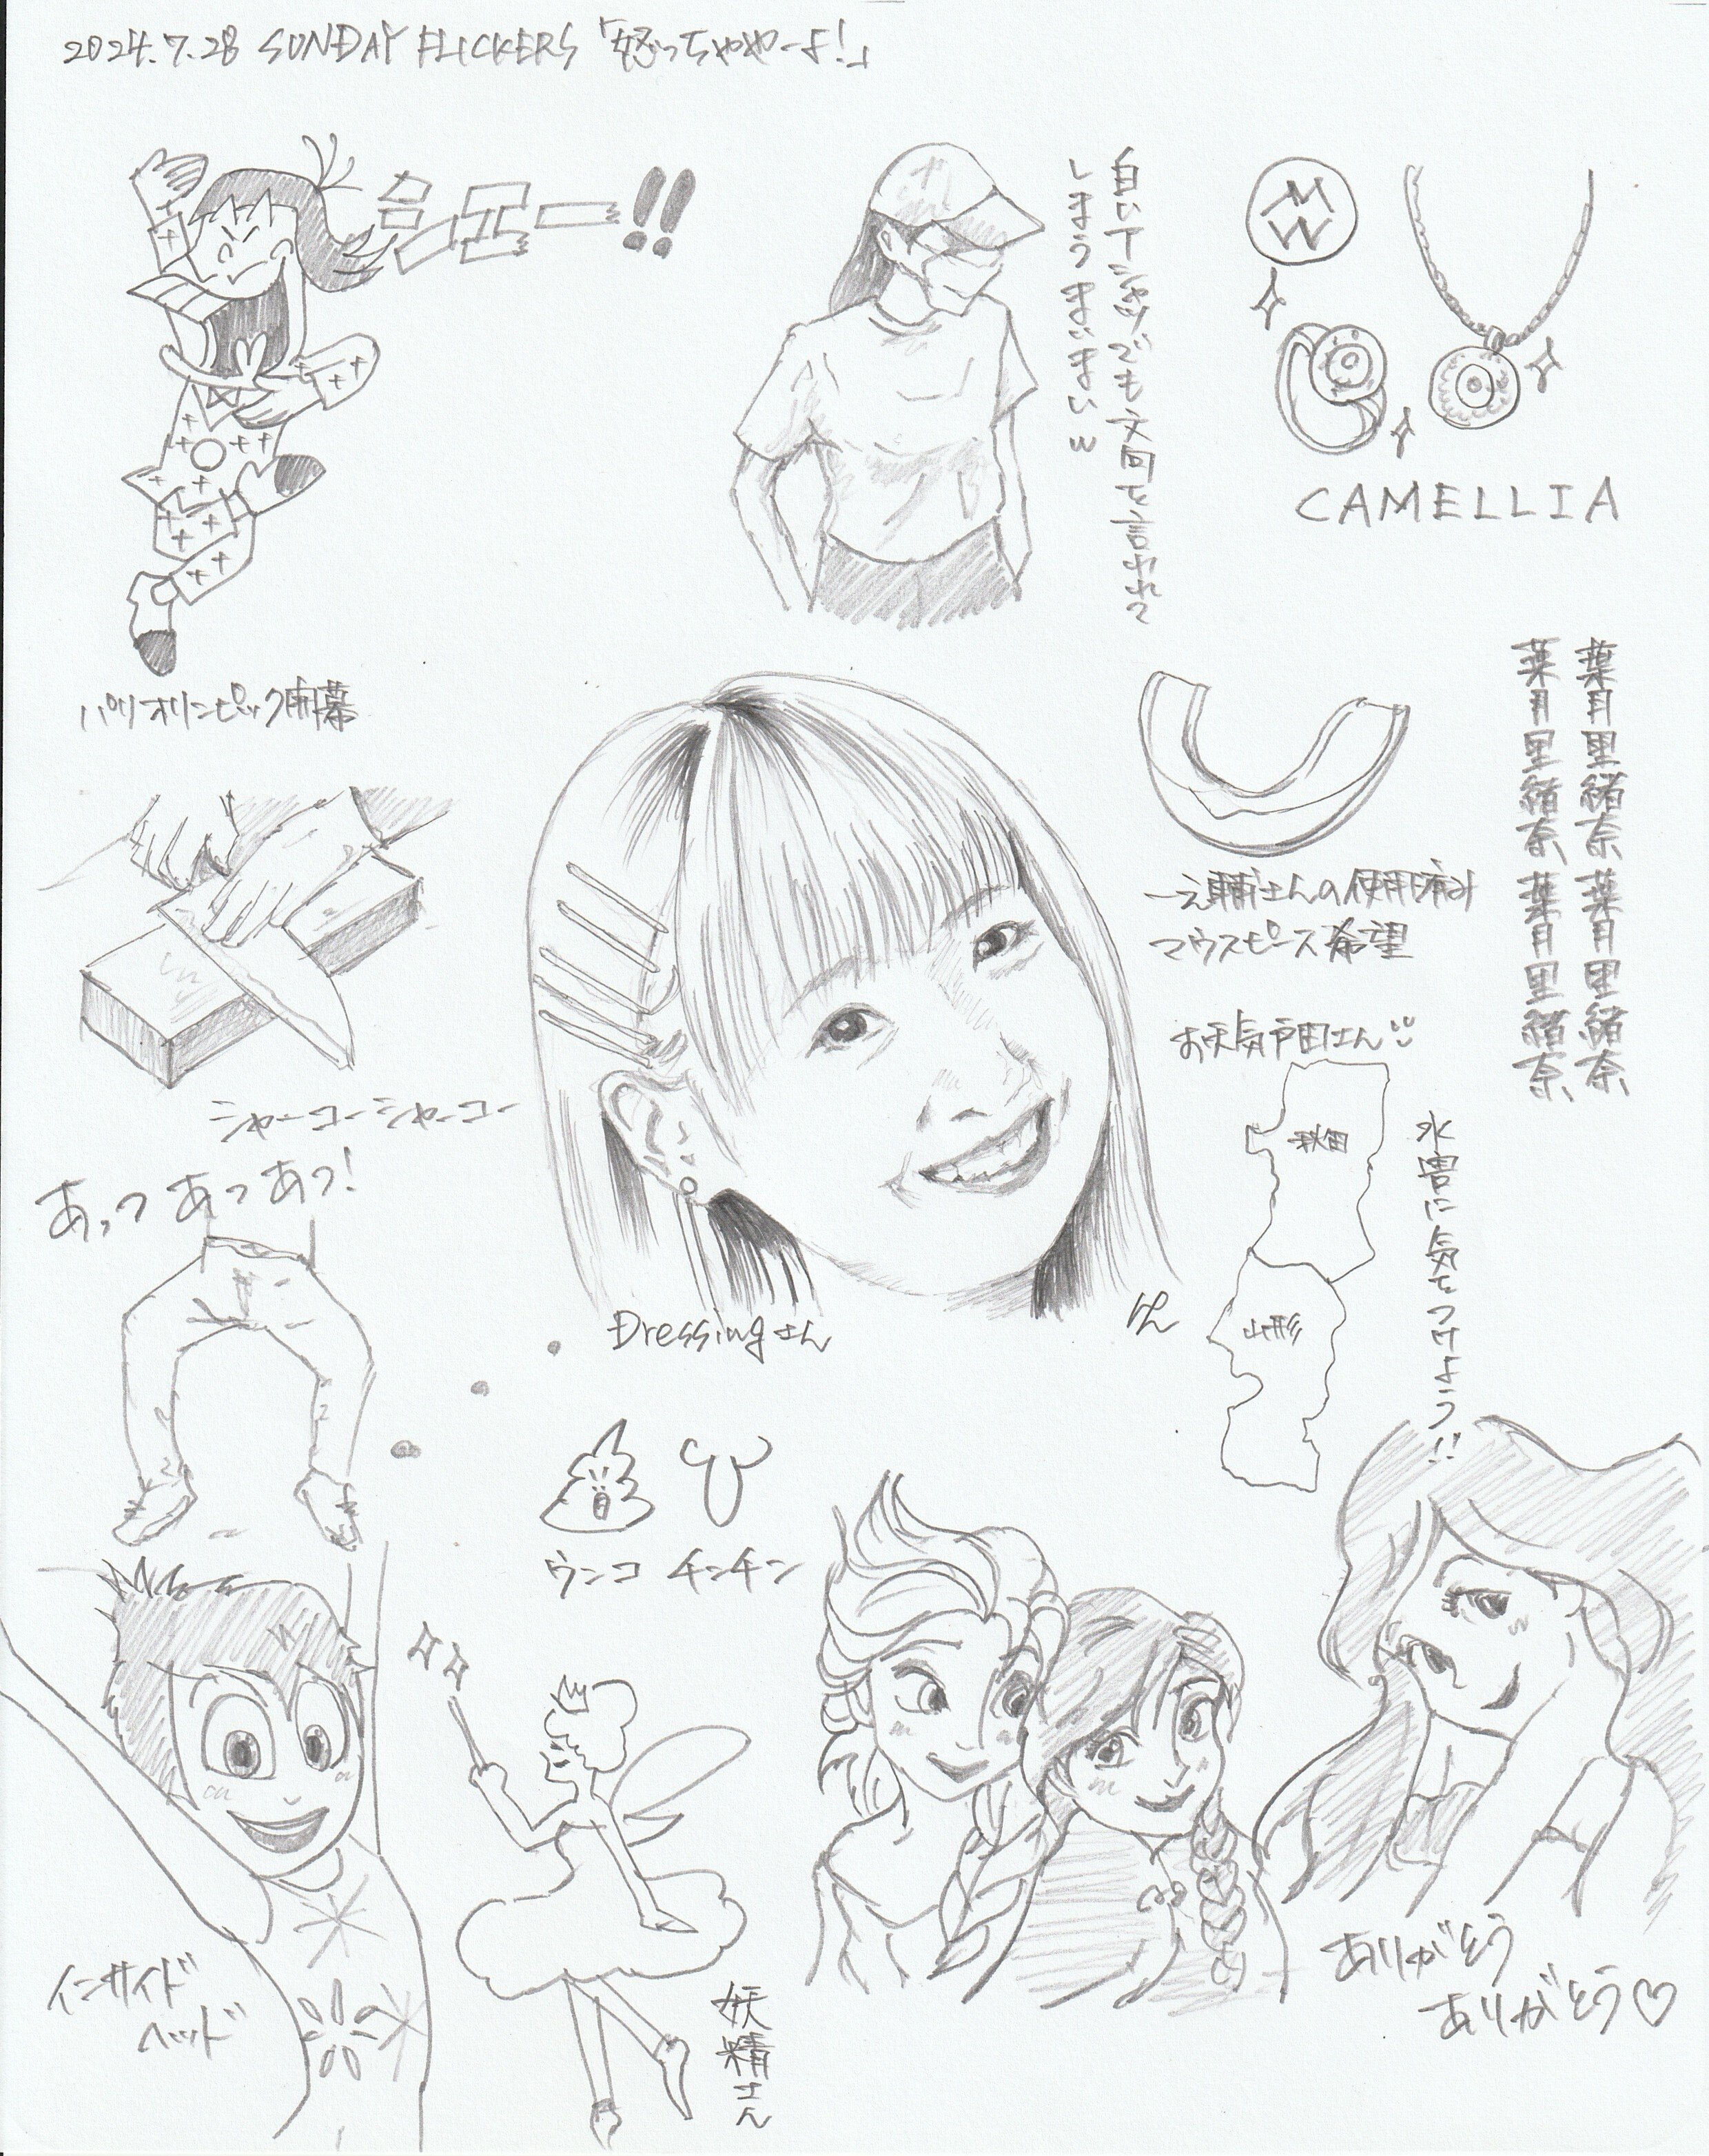 2024.7.28 SUNDAY FLICKERS「怒っちゃやーよ!」
パリオリンピック開幕
白いTシャツでも文句を言われて
しまうまいまい w
MW
CAMELLIA
葉月里緒奈 葉月里緒奈
葉月里緒奈 葉月里緒奈
一之輔さんの使用済み
マウスピース希望
シャーコーシャーコー
お天気戸田さん
秋田
山形
水害に気をつけよう!!
あっつ あっつ あっ!
Dressingさん
りん
ウンコ チンチン
インサイド
ヘッド
妖精さん
ありがとう
ありがとう♡